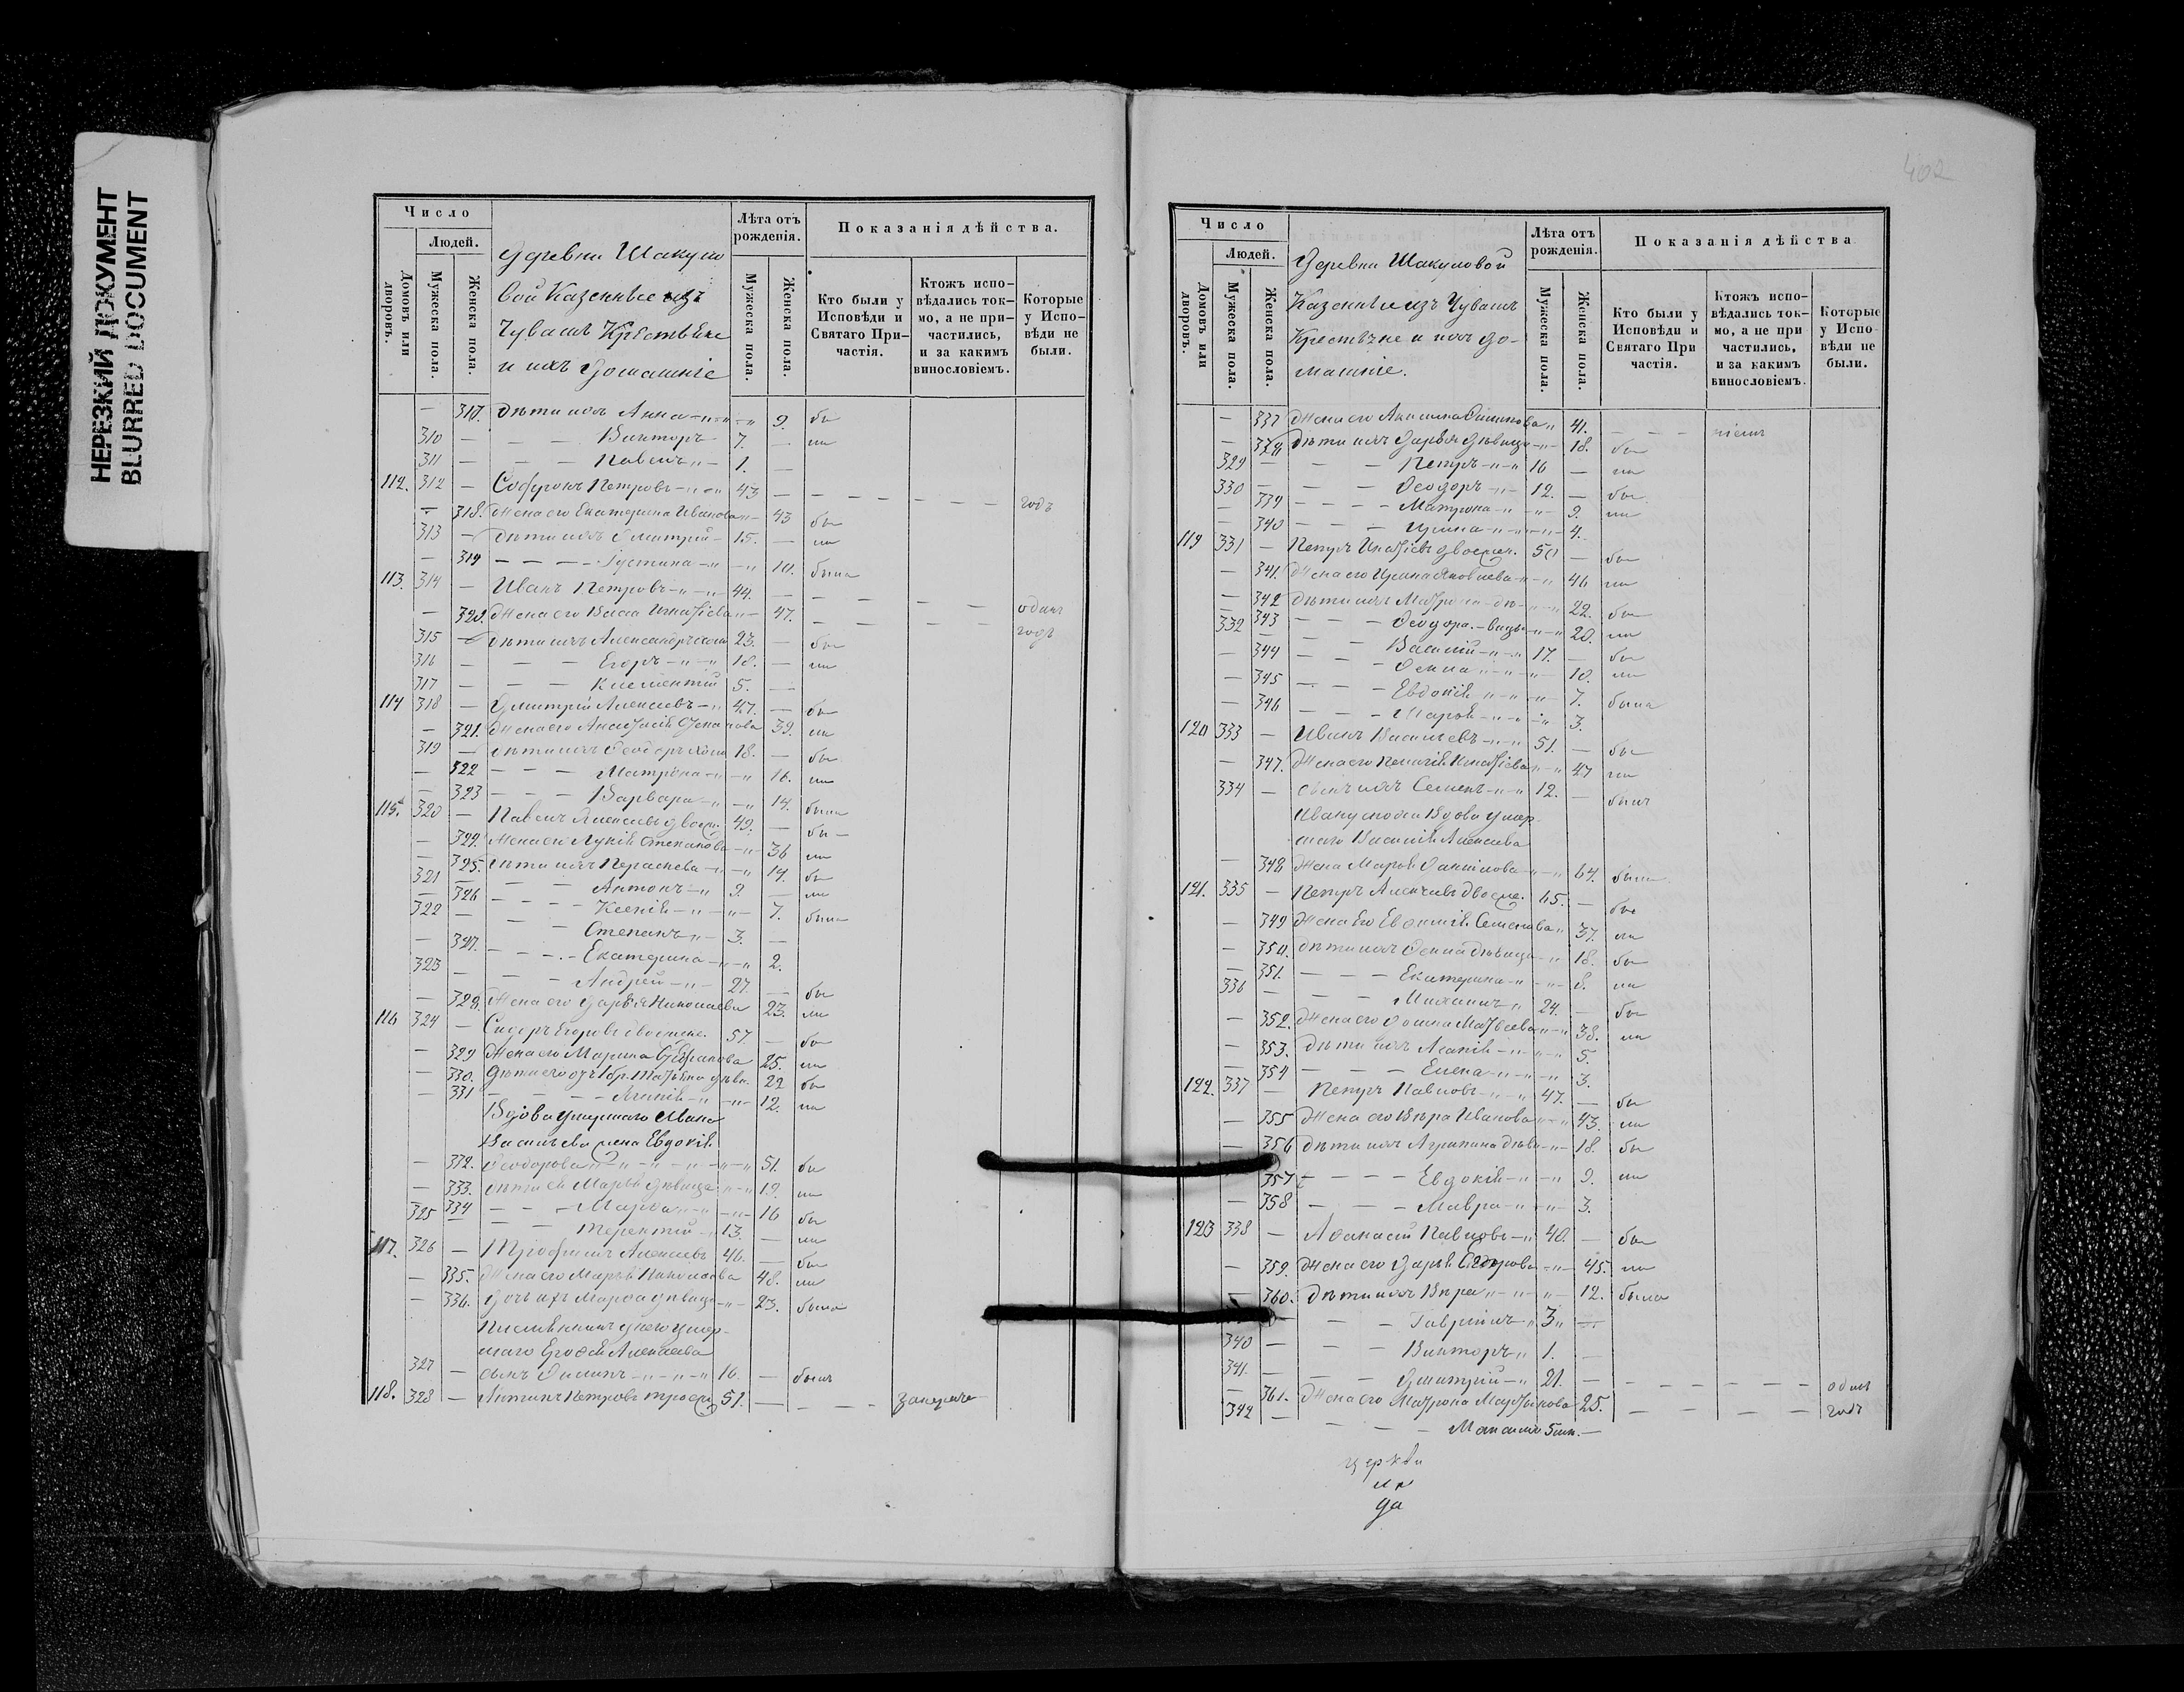 НЕРЕЗКИЙ ДОКУМЕНТ
BLURRED DOCUMENT
Число
Людей.
Домовъ или дворовъ.
Мужеска пола.
Женска пола.
Деревни Шакуло
вой Казенные изъ
Чувашъ Крестьяне
и ихъ домашніе
Лѣта отъ рожденія.
Мужеска пола.
Женска пола.
Показанія дѣйства.
Кто были у Исповѣди и Святаго При-частія.
Ктожъ испо-вѣдались ток-мо, а не при-частились, и за какимъ винословіемъ.
Которые у Испо-вѣди не были.
— 317. дѣти ихъ Анна 9. бы
310 — Викторъ 7. — ли
311 — Павелъ 1. —
112. 312 — Софронъ Петровъ 43 — годъ
— 318. Жена его Екатерина Иванова 43 бы
313 — дѣти ихъ Дмитрий 15. — ли
— 319 Густина 10. была
113. 314 — Иванъ Петровъ 44. — одинъ
— 320. Жена его Васса Игнатіева 47. годъ
315 — дѣти ихъ Александръ 23. — бы
316 — Егоръ 18. — ли
317 — Климентій 5. —
114 318 — Дмитрій Алексѣевъ 47. — бы
— 321. Жена его Анастасія Степанова 39. ли
319 — дѣти ихъ Ѳеодоръ 18. — бы
— 322 Матрона 16. ли
— 323 Варвара 14. была
115. 320 — Павелъ Алексѣевъ 49. — бы
— 324. Жена его Лукія Степанова 36 ли
— 325. дѣти ихъ Параскева 14. бы
321 — Антонъ 9. — ли
— 326 Ксенія 7. была
322 — Степанъ 3. —
— 327. Екатерина 2.
323 — Андрей 27. — бы
— 328. Жена его Дарья Николаева 23. ли
116 324 — Сидоръ Егоровъ двоежен. 57. — бы
— 329 Жена его Марина Стефанова 25. ли
— 330. Дѣти его отъ 1 бр. Татьяна дѣви. 22 бы
— 331 Агапія 12. ли
Вдова умершаго Ивана
Васильева жена Евдокія
— 332. Ѳеодорова 51. бы
— 333. дѣти ея Марья дѣвица 19. ли
— 334 Марѳа 16 бы
325 — Терентій 13. — ли
117. 326 — Трофимъ Алексѣевъ 46. — бы
— 335. Жена его Марья Николаева 48. ли
— 336. Дочь ихъ Марѳа дѣвица 23. была
Племянникъ у него умер-
шаго Ерофея Алексѣева
327 — сынъ Филипъ 16. — былъ
118. 328 — Антипъ Петровъ троеж 51. —
402
Число
Людей.
Домовъ или дворовъ.
Мужеска пола.
Женска пола.
Деревни Шакуловой
Казенные изъ Чувашъ
Крестьяне и ихъ до-
машніе.
Лѣта отъ рожденія.
Мужеска пола.
Женска пола.
Показанія дѣйства
Кто были у Исповѣди и Святаго При частія.
Ктожъ испо-вѣдались ток-мо, а не при частились, и за какимъ винословіемъ.
Которые у Испо-вѣди не были.
— 337 Жена его Акилина 41.
— 338 дѣти ихъ Дарья дѣвица 18. бы
329 — Петръ 16 — ли
330 — Ѳеодоръ 12. — бы
— 339 Матрона 9. ли
— 340 Ирина 4.
119 331 — Петръ Игнатіевъ двоежен. 50 — бы
— 341. Жена его Ирина Яковлева 46 ли
— 342 дѣти ихъ Матрона дѣ- 22. бы
— 343 Ѳеодора -вицы 20. ли
332 — Василій 17. — бы
— 344 10. ли
— 345 Евдокія 7. была
— 346 Марья 3.
120 333 — Иванъ Васильевъ 51. — бы
— 347. Жена его Пелагія Игнатіева 47 ли
334 — сынъ ихъ Семенъ 12. — былъ
Ивану сноха Вдова умер-
шаго Василія Алексѣева
— 348 Жена Марья Даниловна 64. была
121. 335 — Петръ Алексѣевъ двоеже. 65. — бы
— 349 Жена Его Евфимія Семенова 37. ли
— 350. дѣти ихъ дѣвица 18. бы
— 351. Екатерина 8. ли
336 — Михаилъ 24. — бы
— 352. Жена его Матвѣева 38. ли
— 353. дѣти ихъ Агапія 5.
— 354 Елена 3.
122. 337 — Петръ Павловъ 47. — бы
— 355 Жена его Вѣра Иванова 43. ли
— 356 дѣти ихъ Агрипина дѣви 18. бы
357 Евдокія 9. ли
— 358 Мавра 3.
123 338 — Аѳанасій Павловъ 40. — бы
— 359. Жена его Дарья Егорова 45. ли
— 360. Дѣти ихъ Вѣра 12. была
Гавріилъ 3 —
340 — Викторъ 1. —
341. — Дмитрій 21. — одинъ
— 361. Жена его Матрона Мартынова 25. годъ
342 — 5
церкви